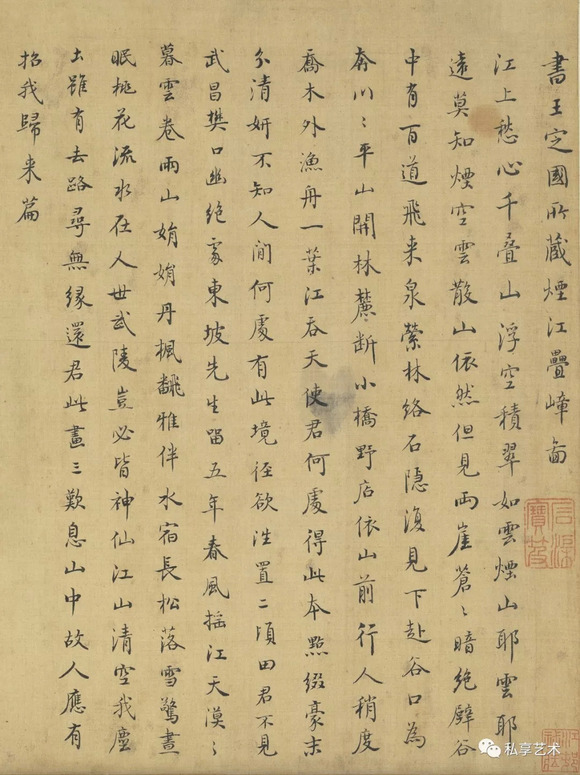 書王定國所藏煙江疊嶂啚
江上愁心千疊山浮空積翠如雲煙山耶雲耶
遠莫知煙空雲散山依然但見兩崖蒼〻暗絶壁谷
中有百道飛来泉縈林絡石隱復見下赴谷口為
奔川〻平山開林麓斷小橋野店依山前行人稍度
喬木外漁舟一葉江吞天使君何處得此本點綴豪末
分清妍不知人間何處有此境徑欲往置二頃田君不見
武昌樊口幽絶處東坡先生留五年春風搖江天漠〻
暮雲卷雨山娟娟丹楓飜雅伴水宿長松落雪驚晝
眠桃花流水在人世武陵豈必皆神仙江山清空我塵
土雖有去路尋無緣還君此畫三歎息山中故人應有
招我歸来篇
私享艺术